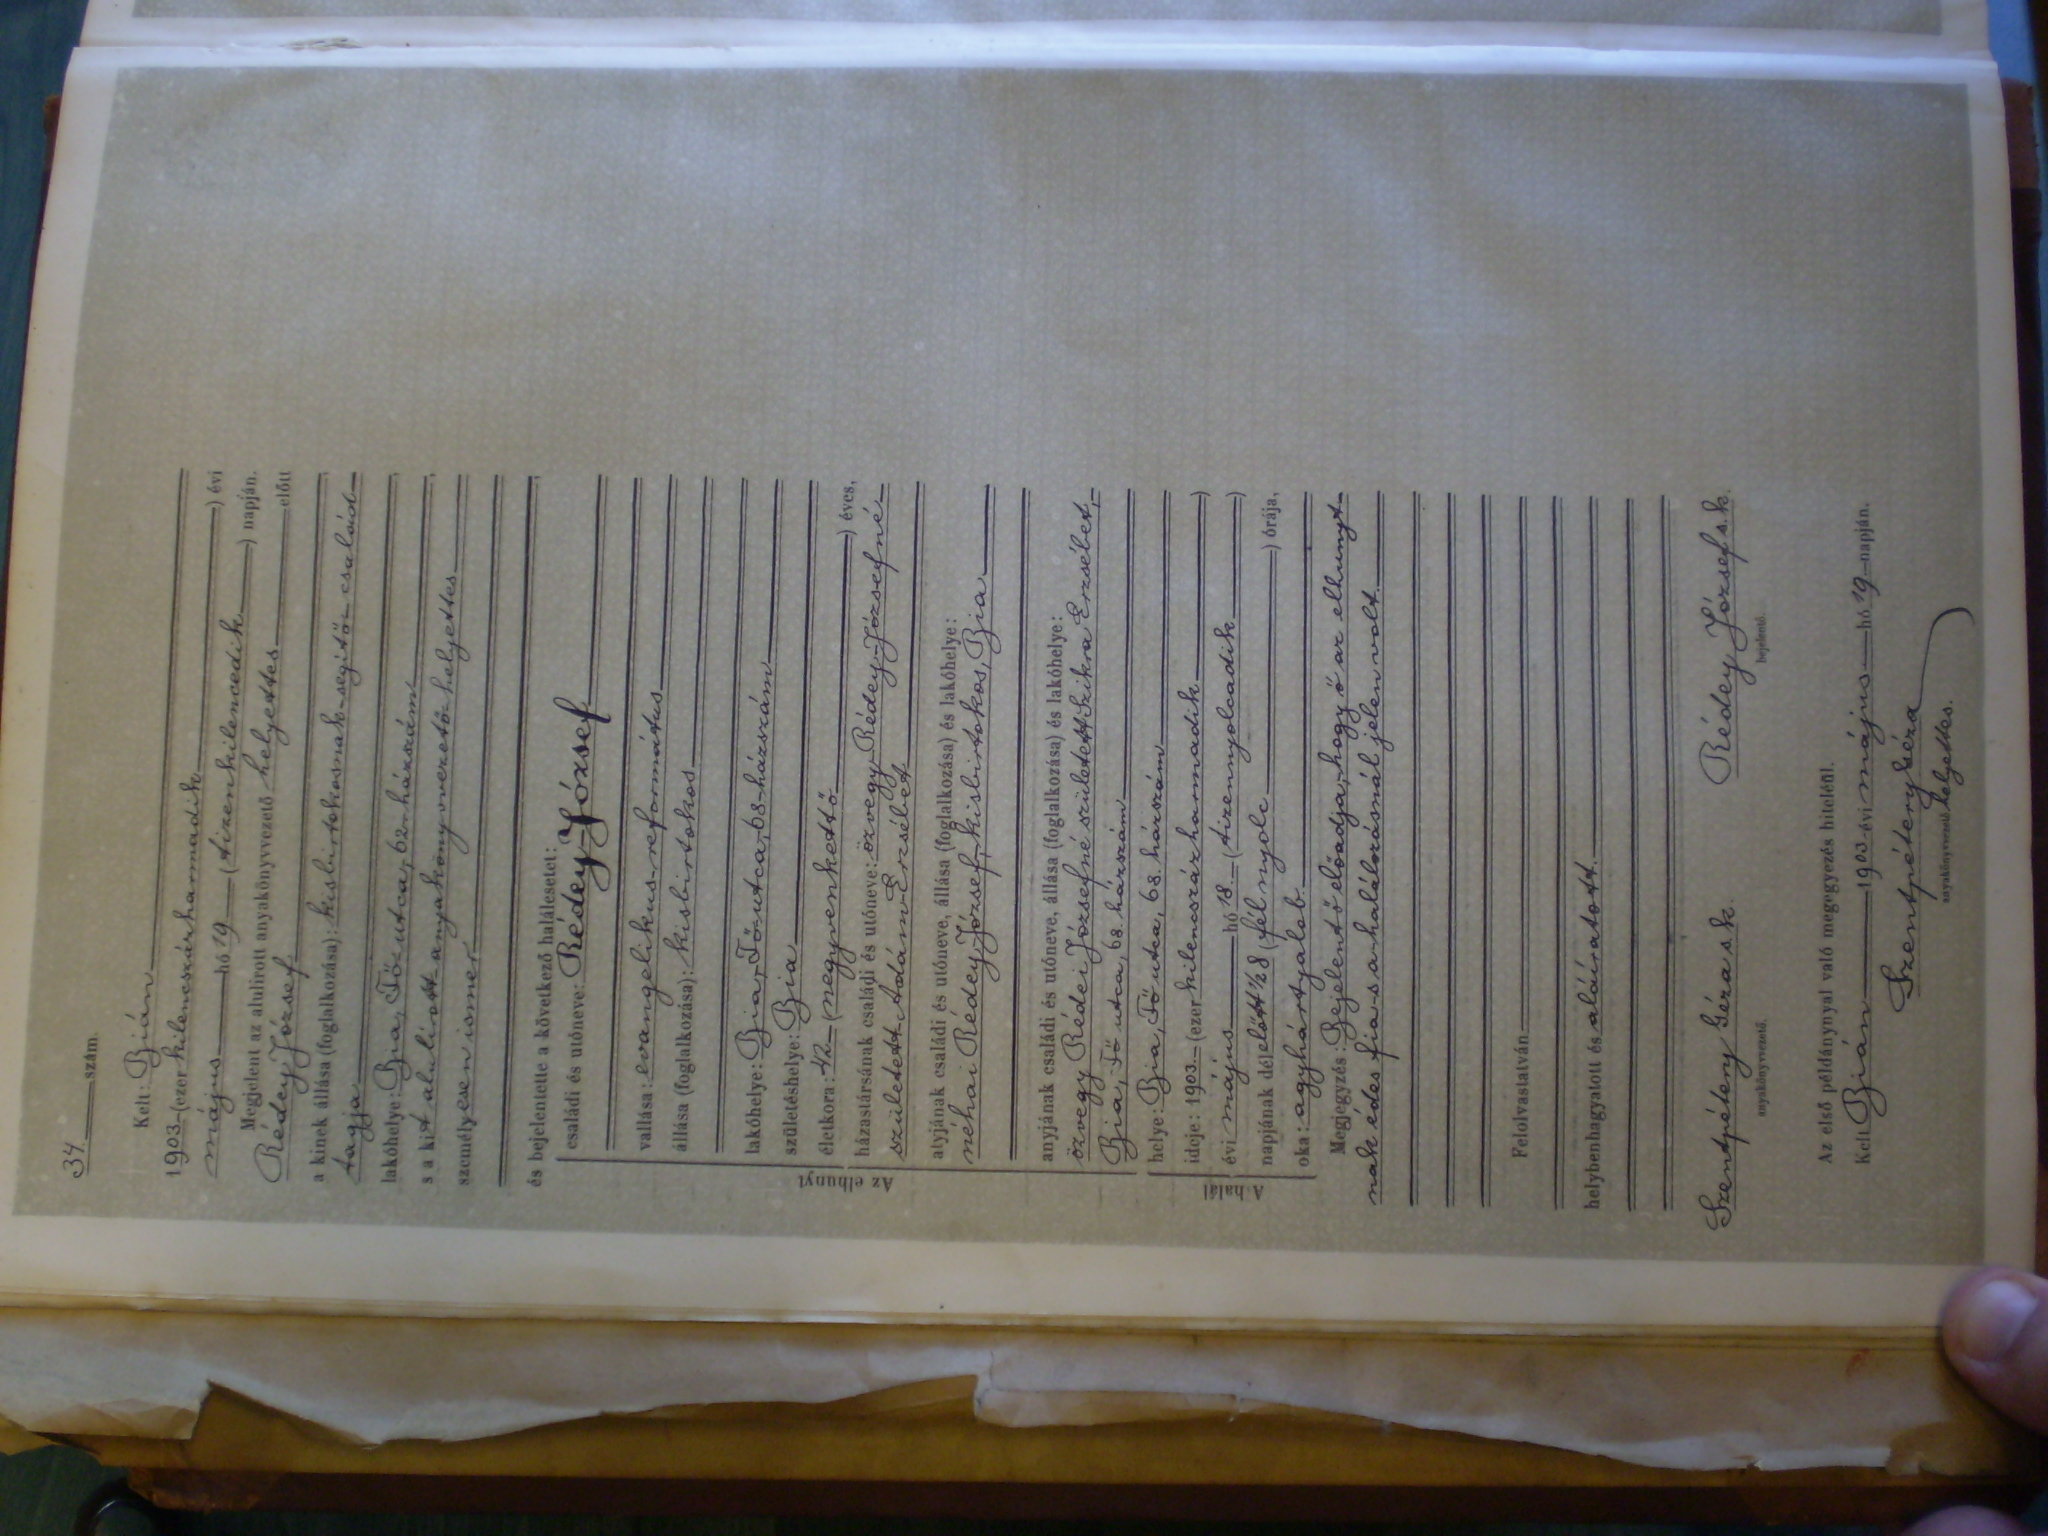 34. szám.
Kelt: Bián
1903. (ezer kilencszázharmadik) évi
május hó 19 (tizenkilencedik) napján.
Megjelent az alulirott anyakönyvvezető helyettes előtt
Rédey József
a kinek állása (foglalkozása): kisbirtokosnak segitő család-
tagja
lakóhelye: Bia, Főutca, 62 házszám
s a kit alulirott anyakönyvvezető helyettes
személyesen ismer
és bejelentette a következő halálesetet:
családi és utóneve: Rédey József
vallása: evangelikus református
állása (foglalkozása): kisbirtokos
lakóhelye: Bia, Főutca, 68 házszám
születéshelye: Bia
életkora: 42 (negyvenkettő) éves,
házastársának családi és utóneve: özvegy Rédey Józsefné
született Ádám Erzsébet
atyjának családi és utóneve, állása (foglalkozása) és lakóhelye:
néhai Rédey József, kisbirtokos, Bia
anyjának családi és utóneve, állása (foglalkozása) és lakóhelye:
özvegy Rédei Józsefné született Szikra Erzsébet,
Bia, Fő utca, 68. házszám
Az elhunyt
helye: Bia, Fő utca, 68. házszám
ideje: 1903. (ezer kilencszázharmadik)
évi május hó 18. (tizennyolcadik)
napjának délelőtt 1/2 8 (fél nyolc) órája,
oka: agyhártyalob.
A halál
Megjegyzés: Bejelentő előadja, hogy ő az elhunyt-
nak édes fia s a halálozásnál jelen volt.
Felolvastatván
helybenhagyatott és aláiratott.
Szentpétery Géza sk. Rédey József s.k.
anyakönyvvezető. bejelentő.
Az első példánynyal való megegyezés hiteléül.
Kelt Bián 1903. évi május hó 19 napján.
Szentpétery Géza
anyakönyvvezető helyettes.